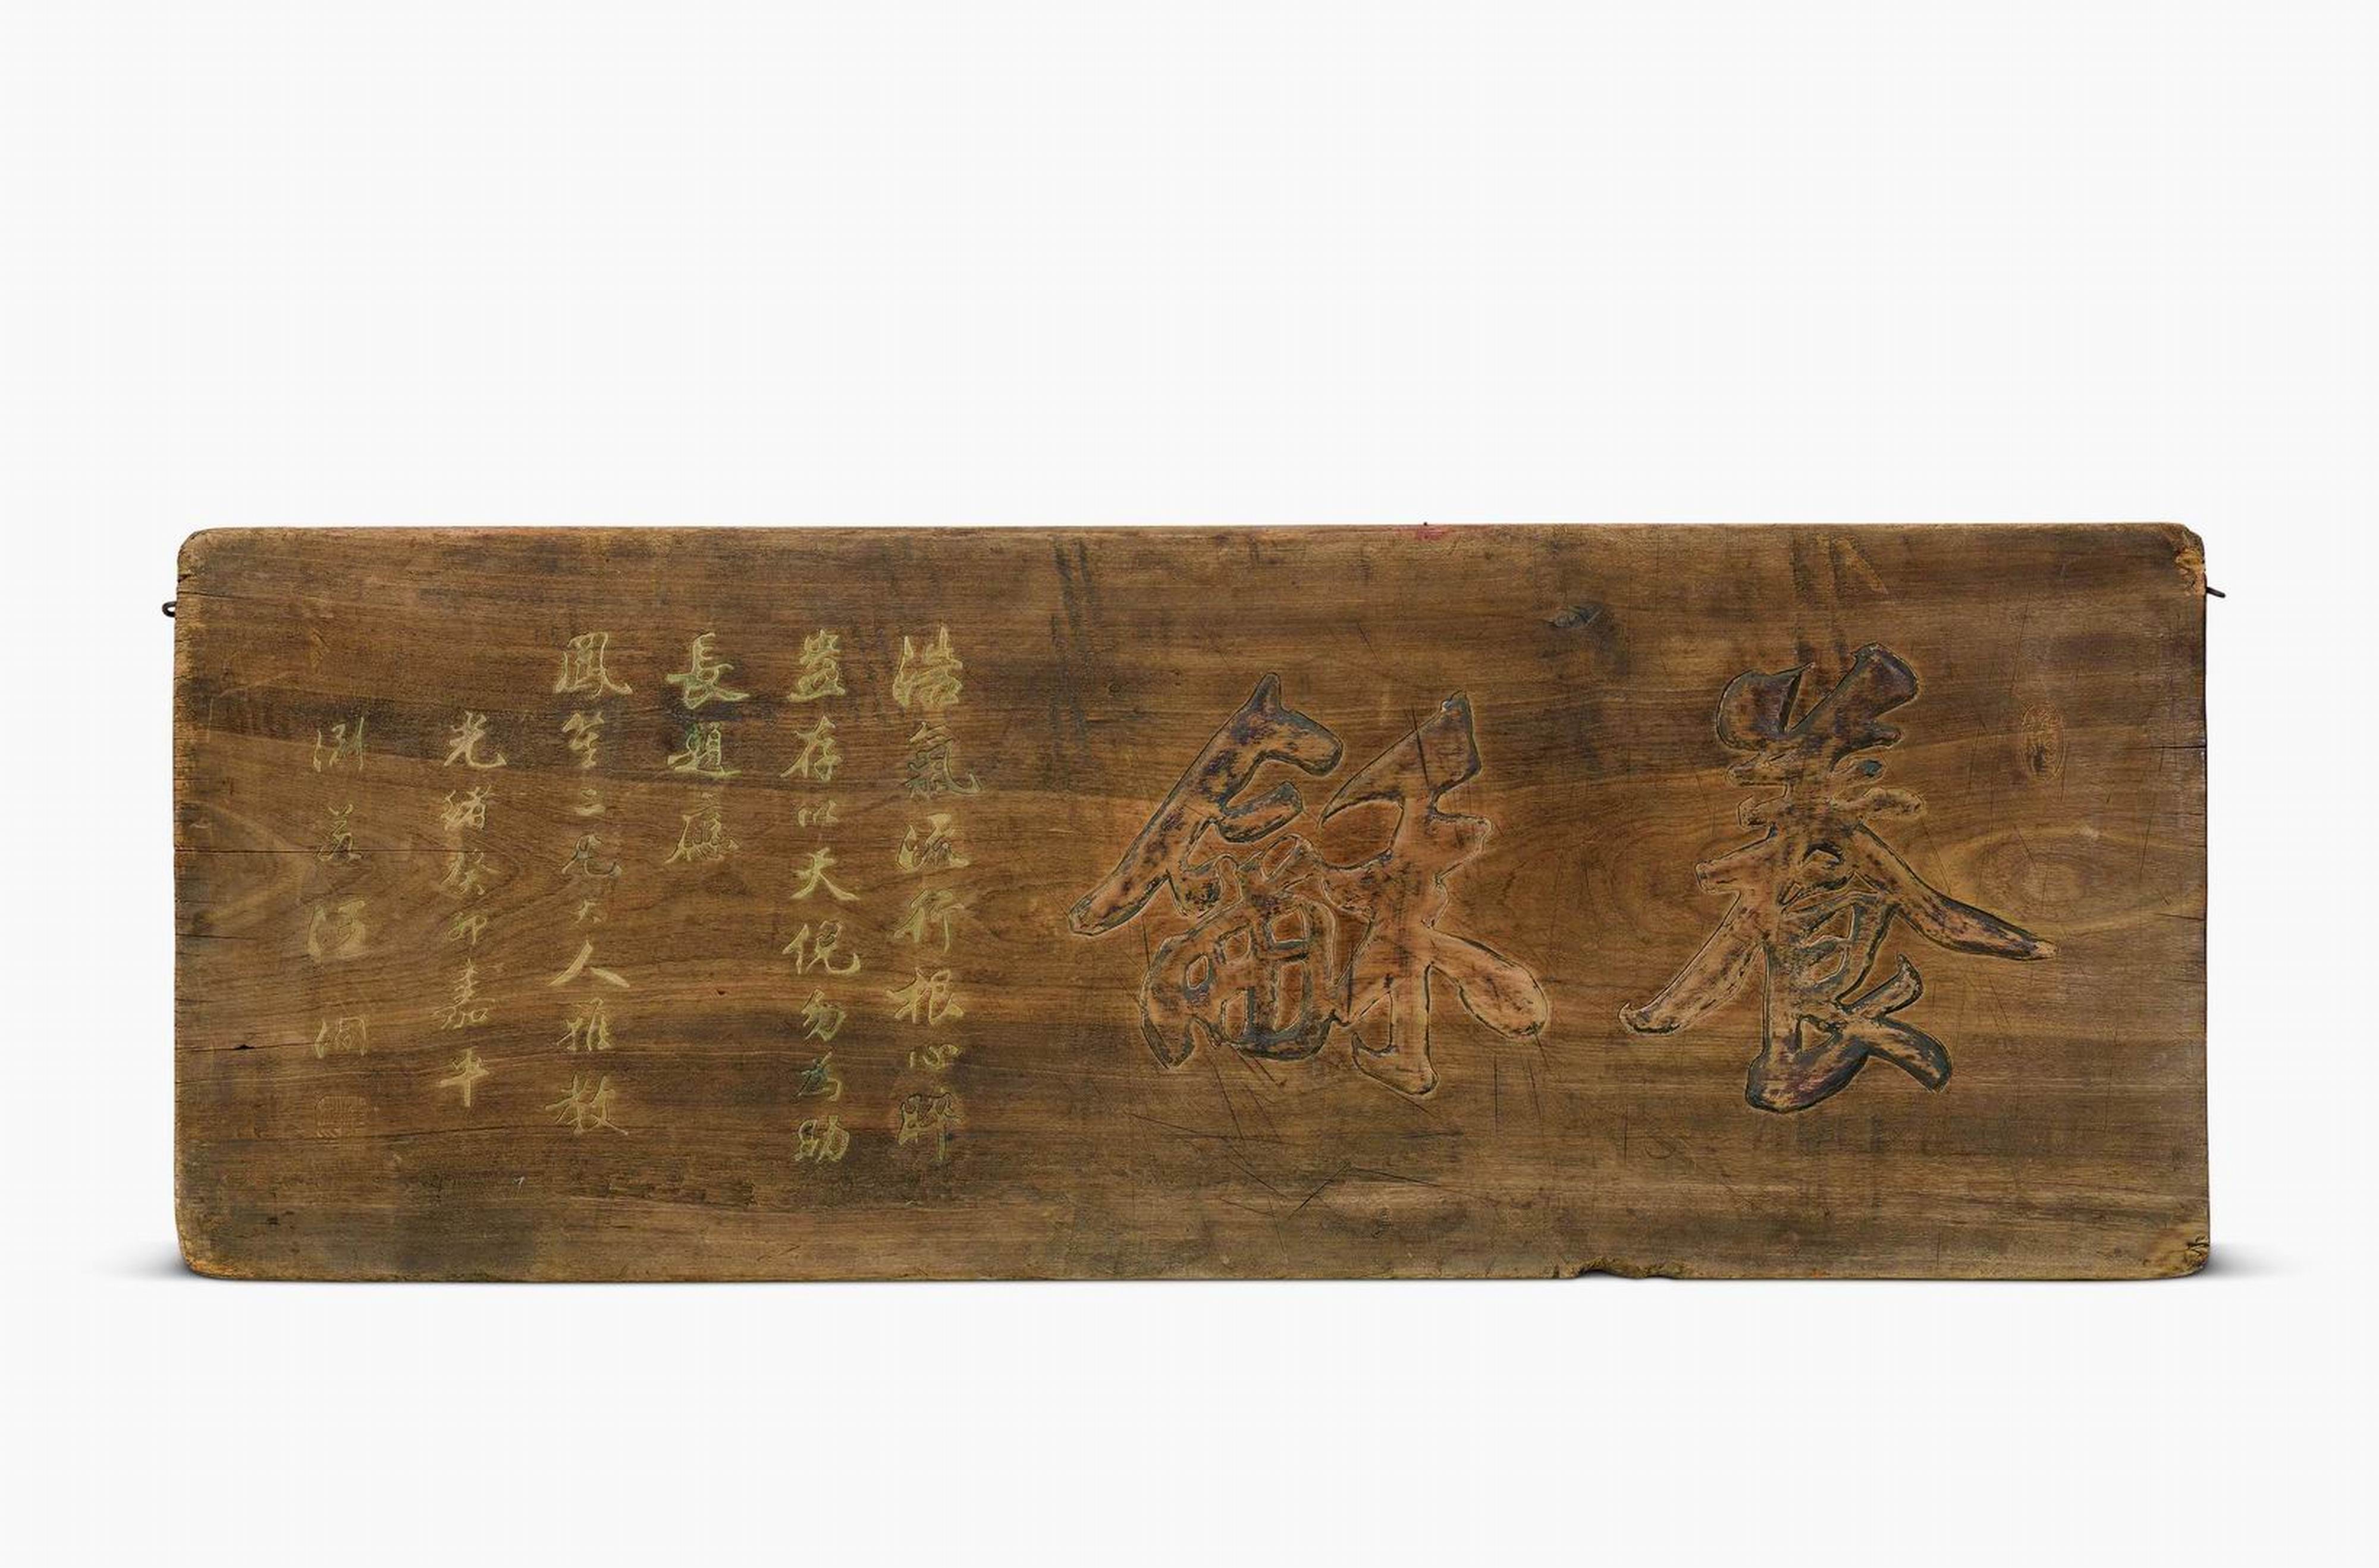 養龢
浩氣流行根心睟
盎存以天倪勿為助
長題應
鳳笙二兄大人雅教
光緒癸卯嘉平